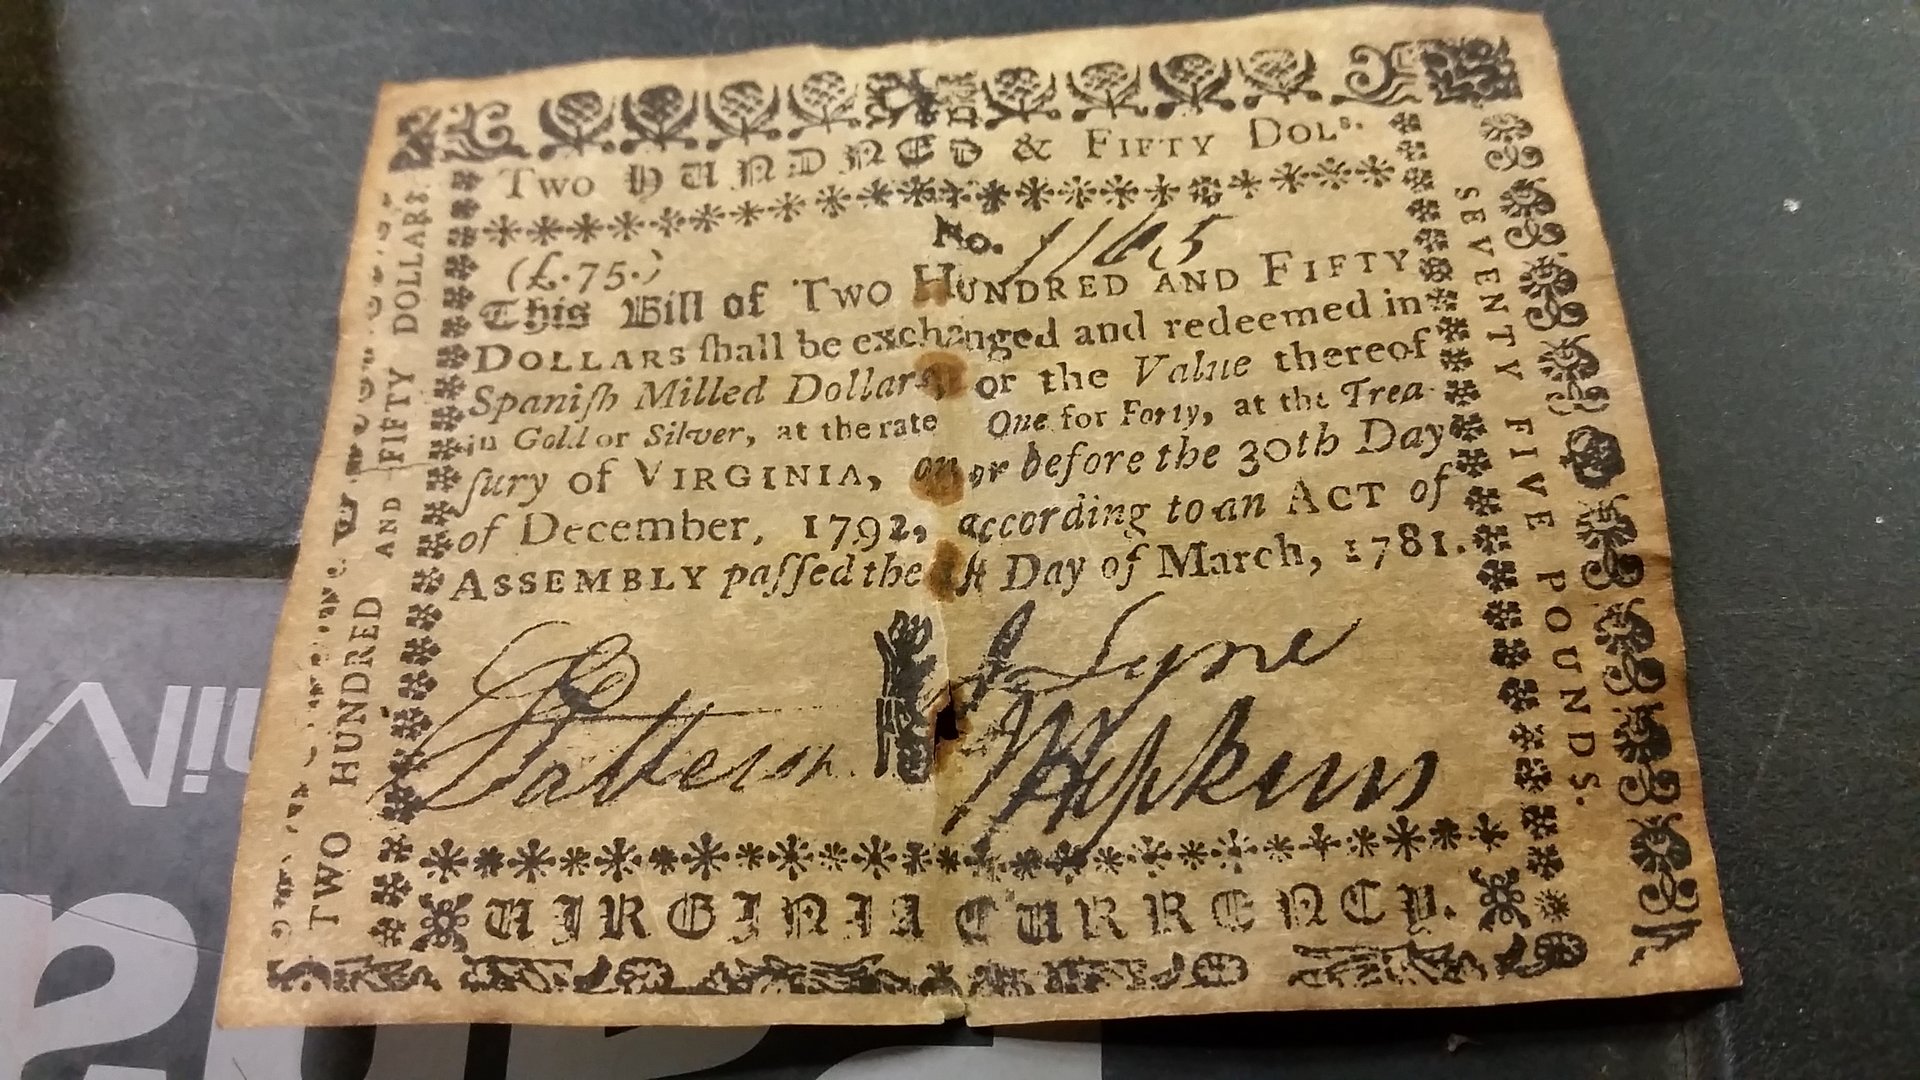 Two HUNDNED & FIFTY DOLs.
No. 1165
(£.75.)
This Bill of TWO HUNDRED AND FIFTY
DOLLARS ſhall be exchanged and redeemed in
Spaniſh Milled Dollars or the Value thereof
in Gold or Silver, at the rate One for Forty, at the Trea
ſury of VIRGINIA, on or before the 30th Day
of December, 1792, according to an ACT of
ASSEMBLY paſſed the 1ſt Day of March, 1781.
J Lyne
Patterson.
Hopkins
VIRGINIA CURRENCY.
TWO HUNDRED AND FIFTY DOLLARS.
SEVENTY FIVE POUNDS.